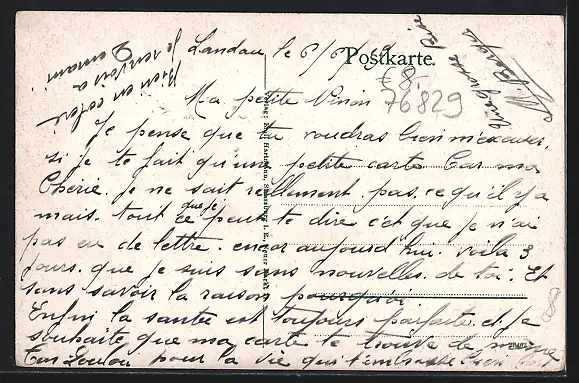 Postkarte.
Landau le 6/6/19
76829
Ma petite Ninon
Je pense que tu voudras bien m'excuser
si je te fait qu'une petite carte Car ma
Cherie. je ne sait réellement pas. ce qu'il y a
mais. tout ce que je peut te dire c'et que je n'ai
pas eu de lettre. encor aujourd'hui. voila 3
jours. que je suis sans nouvelles. de toi. Et
sans savoir la raison pourquoi.
Enfin la santée est toujours parfaite. et je
souhaite que ma carte te trouve de même
Ton Loulou pour la vie qui t'embrasse bien fort
Une grosse Bise
Bien en colère
Je renvois a
Demain